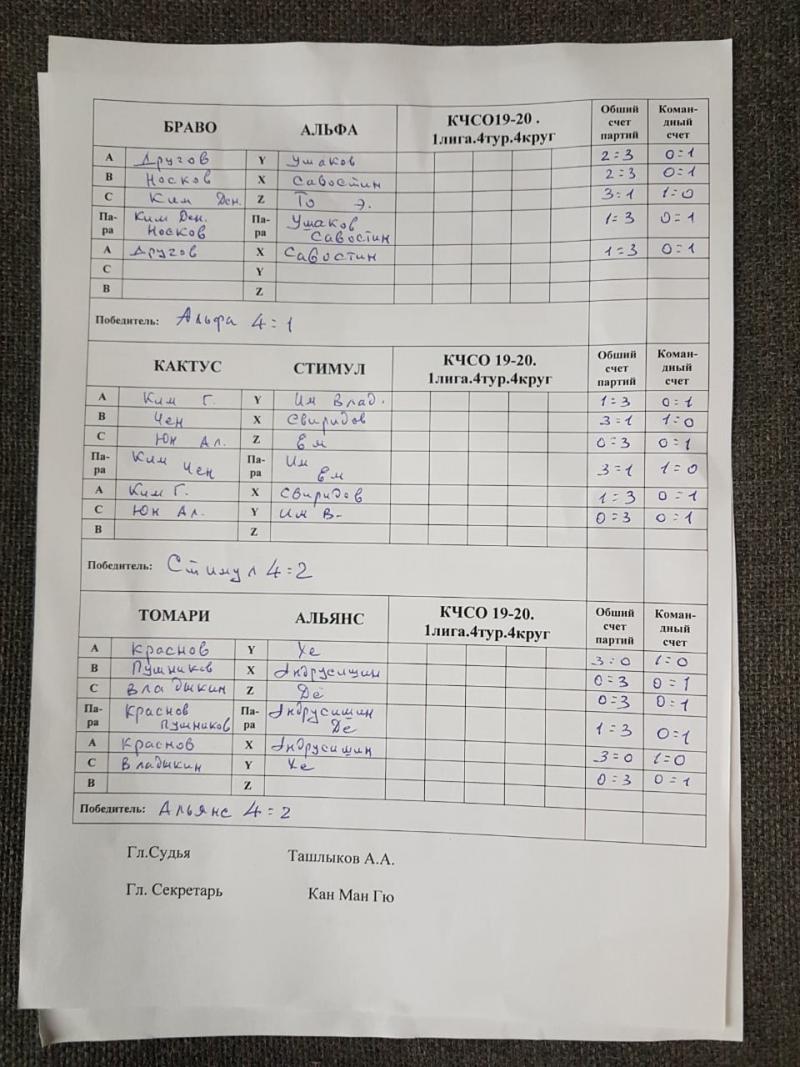 БРАВО АЛЬФА КЧСО19-20 . 1лига.4тур.4круг Общий счет партий Коман-дный счет
А Другов Y Ушаков 2=3 0=1
В Носков X Савостин 2=3 0=1
С Ким Ден. Z То Э. 3=1 1=0
Па-ра Ким Ден. Носков Па-ра Ушаков Савостин 1=3 0=1
А Другов X Савостин 1=3 0=1
С Y
В Z
Победитель: Альфа 4=1
КАКТУС СТИМУЛ КЧСО 19-20. 1лига.4тур.4круг Общий счет партий Коман-дный счет
А Ким Г. Y Им Влад. 1=3 0=1
В Чен X Свиридов 3=1 1=0
С Юн Ал. Z Ем 0=3 0=1
Па-ра Ким Чен Па-ра Им Ем 3=1 1=0
А Ким Г. X Свиридов 1=3 0=1
С Юн Ал. Y Им В- 0=3 0=1
В Z
Победитель: Стимул 4=2
ТОМАРИ АЛЬЯНС КЧСО 19-20. 1лига.4тур.4круг Общий счет партий Коман-дный счет
А Краснов Y Хе 3=0 1=0
В Пушников X Андрусишин 0=3 0=1
С Владыкин Z Дё 0=3 0=1
Па-ра Краснов Пушников Па-ра Андрусишин Дё 1=3 0=1
А Краснов X Андрусишин 3=0 1=0
С Владыкин Y Хе 0=3 0=1
В Z
Победитель: Альянс 4=2
Гл.Судья Ташлыков А.А.
Гл. Секретарь Кан Ман Гю